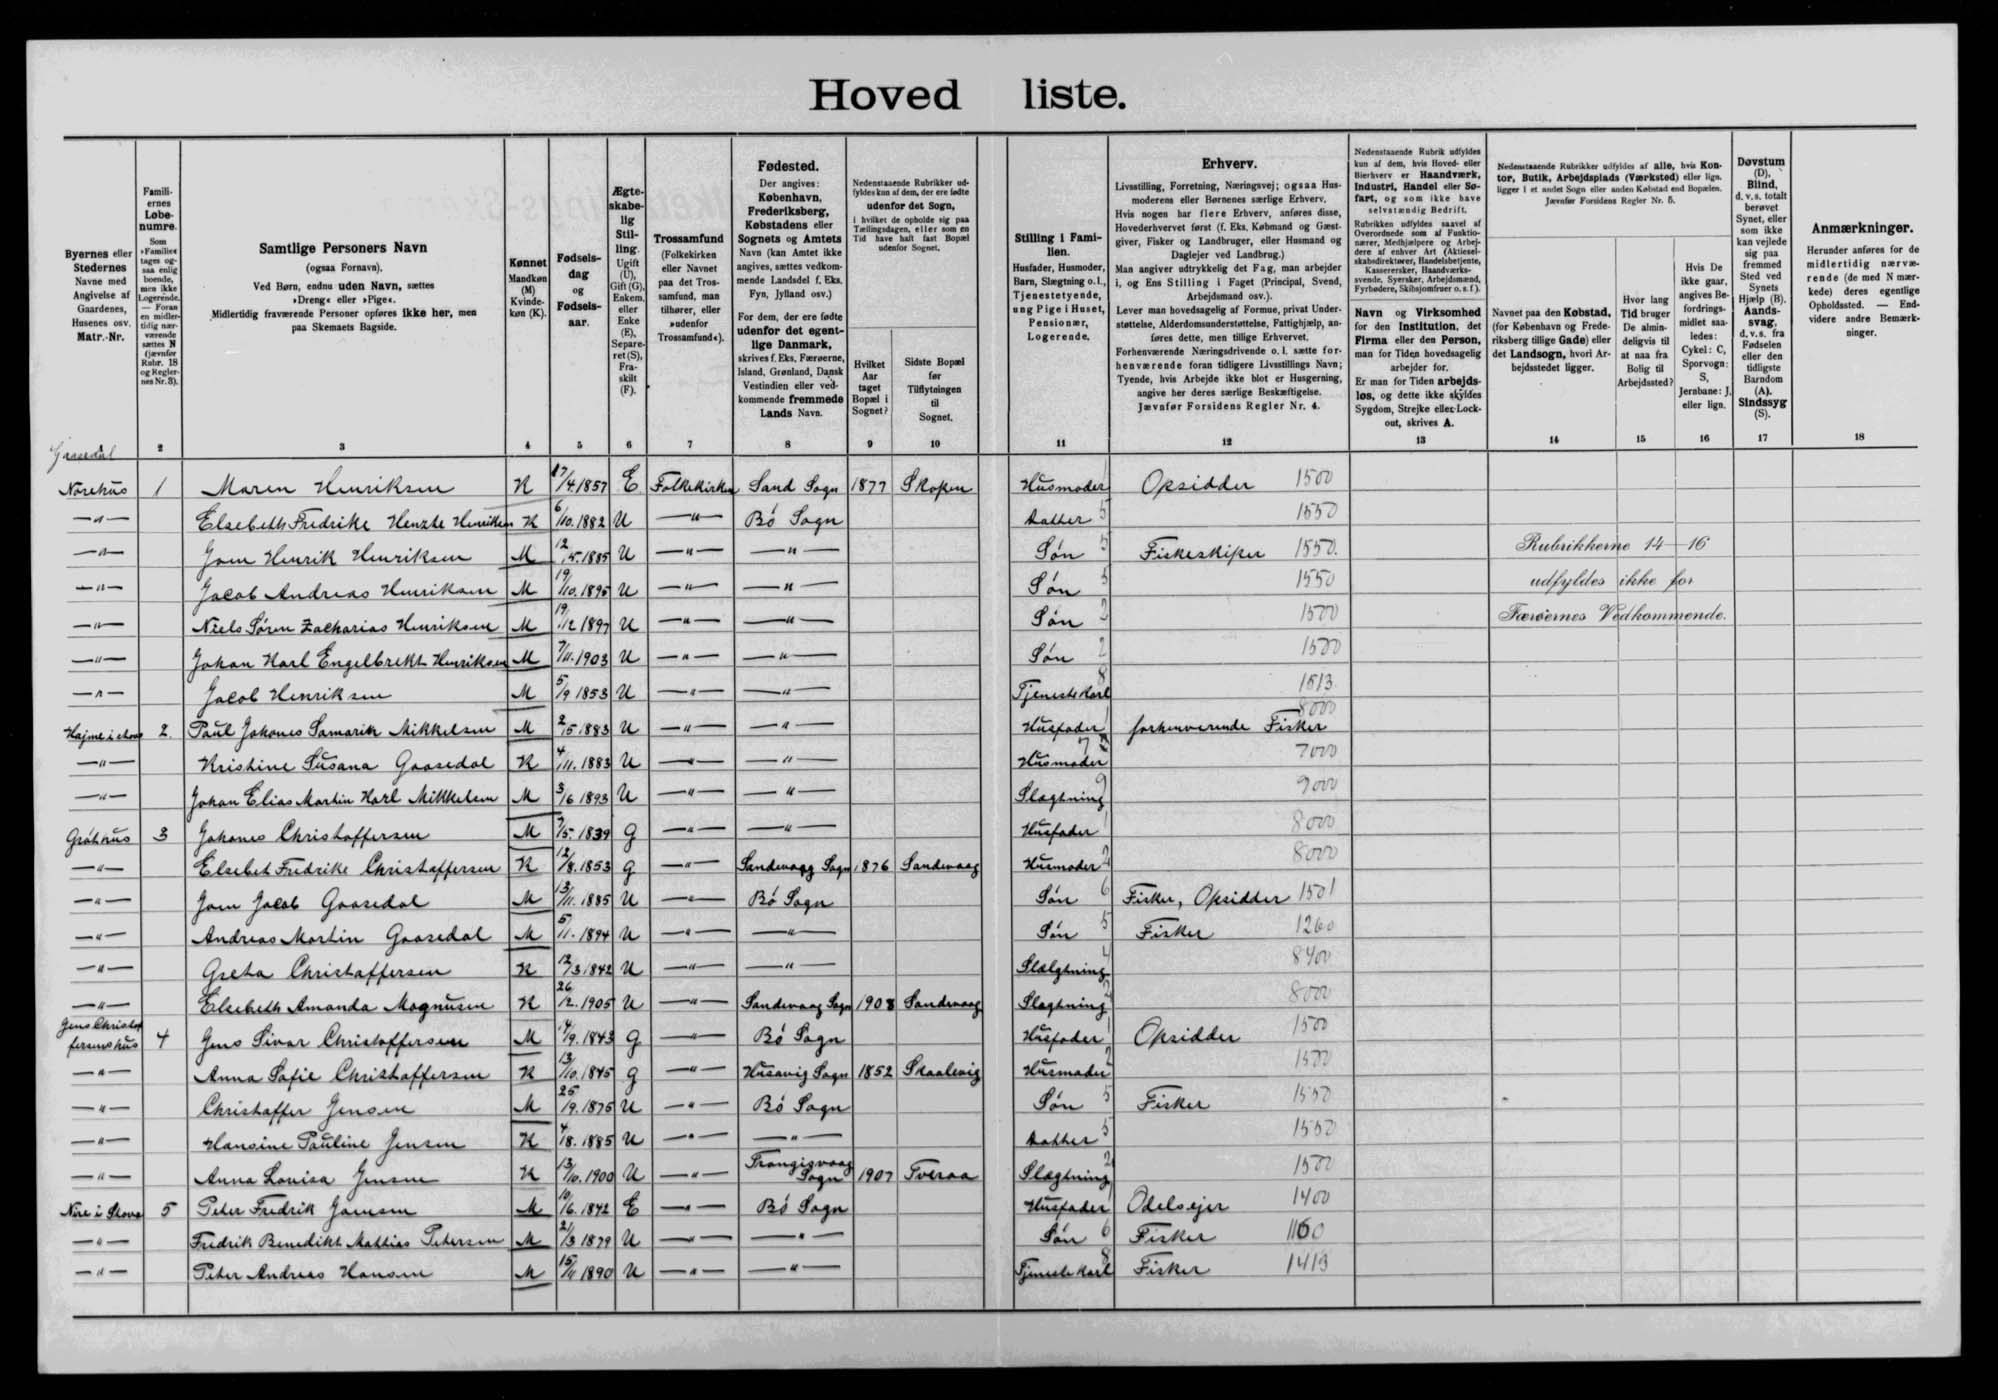 Hoved liste.
Byernes eller Stedernes Navne med Angivelse af Gaardenes, Husenes osv. Matr.-Nr.
Familiernes Løbenumre.
Som »Familie« tages ogsaa enlig boende, men ikke Logerende. — Foran en midlertidig nærværende sættes N (jævnfør Rubr. 18 og Reglernes Nr. 3).
Samtlige Personers Navn
(ogsaa Fornavn).
Ved Børn, endnu uden Navn, sættes »Dreng« eller »Pige«.
Midlertidig fraværende Personer opføres ikke her, men paa Skemaets Bagside.
Kønnet
Mandkøn (M) Kvindekøn (K).
Fødselsdag og Fødselsaar.
Ægteskabelig Stilling.
Ugift (U), Gift (G), Enkem. eller Enke (E), Separeret (S), Fraskilt (F).
Trossamfund
(Folkekirken eller Navnet paa det Trossamfund, man tilhører, eller »udenfor Trossamfund«).
Fødested.
Der angives: København, Frederiksberg, Købstadens eller Sognets og Amtets Navn (kan Amtet ikke angives, sættes vedkommende Landsdel f. Eks. Fyn, Jylland osv.)
For dem, der ere fødte udenfor det egentlige Danmark, skrives f. Eks. Færøerne, Island, Grønland, Dansk Vestindien eller vedkommende fremmede Lands Navn.
Nedenstaaende Rubrikker udfyldes kun af dem, der ere fødte udenfor det Sogn, i hvilket de opholde sig paa Tællingsdagen, eller som en Tid have haft fast Bopæl udenfor Sognet.
Hvilket Aar taget Bopæl i Sognet?
Sidste Bopæl før Tilflytningen til Sognet.
Stilling i Familien.
Husfader, Husmoder, Barn, Slægtning o. l., Tjenestetyende, ung Pige i Huset, Pensionær, Logerende.
Erhverv.
Livsstilling, Forretning, Næringsvej; ogsaa Husmoderens eller Børnenes særlige Erhverv.
Hvis nogen har flere Erhverv, anføres disse, Hovederhvervet først (f. Eks. Købmand og Gæstgiver, Fisker og Landbruger, eller Husmand og Daglejer ved Landbrug.)
Man angiver udtrykkelig det Fag, man arbejder i, og Ens Stilling i Faget (Principal, Svend, Arbejdsmand osv.).
Lever man hovedsagelig af Formue, privat Understøttelse, Alderdomsunderstøttelse, Fattighjælp, anføres dette, men tillige Erhvervet.
Forhenværende Næringsdrivende o. l. sætte forhenværende foran tidligere Livsstillings Navn; Tyende, hvis Arbejde ikke blot er Husgerning, angive her deres særlige Beskæftigelse.
Jævnfør Forsidens Regler Nr. 4.
Nedenstaaende Rubrik udfyldes kun af dem, hvis Hoved- eller Bierhverv er Haandværk, Industri, Handel eller Søfart, og som ikke have selvstændig Bedrift.
Rubrikken udfyldes saavel af Overordnede som af Funktionærer, Medhjælpere og Arbejdere af enhver Art (Aktieselskabsdirektører, Handelsbetjente, Kasserersker, Haandværkssvende, Syersker, Arbejdsmænd, Fyrbødere, Skibsjomfruer o. s. f.).
Navn og Virksomhed for den Institution, det Firma eller den Person, man for Tiden hovedsagelig arbejder for.
Er man for Tiden arbejdsløs, og dette ikke skyldes Sygdom, Strejke eller Lockout, skrives A.
Nedenstaaende Rubrikker udfyldes af alle, hvis Kontor, Butik, Arbejdsplads (Værksted) eller lign. ligger i et andet Sogn eller anden Købstad end Bopælen.
Jævnfør Forsidens Regler Nr. 5.
Navnet paa den Købstad, (for København og Frederiksberg tillige Gade) eller det Landsogn, hvori Arbejdsstedet ligger.
Hvor lang Tid bruger De almindeligvis til at naa fra Bolig til Arbejdssted?
Hvis De ikke gaar, angives Befordringsmidlet saaledes: Cykel: C, Sporvogn: S, Jernbane: J, eller lign.
Døvstum (D), Blind, d. v. s. totalt berøvet Synet, eller som ikke kan vejlede sig paa fremmed Sted ved Synets Hjælp (B). Aandssvag, d. v. s. fra Fødselen eller den tidligste Barndom (A). Sindssyg (S).
Anmærkninger.
Herunder anføres for de midlertidig nærværende (de med N mærkede) deres egentlige Opholdssted. — Endvidere andre Bemærkninger.
2 3 4 5 6 7 8 9 10 11 12 13 14 15 16 17 18
Gaasedal
Norehus 1 Maren Henriksen K 17/4.1857 E Folkekirken Sand Sogn 1877 Skopen Husmoder 1 Opsidder 1500
—"— Elsebeth Fredrike Henzte Henriksen K 6/10.1882 U —"— Bö Sogn Datter 5 1550
—"— Joen Henrik Henriksen M 12/5.1885 U —"— —"— Søn 5 Fiskeskiper 1550. Rubrikkerne 14—16
—"— Jacob Andreas Henriksen M 19/10.1895 U —"— —"— Søn 5 1550 udfyldes ikke for
—"— Niels Sören Zacharias Henriksen M 19/12 1897 U —"— —"— Søn 2 1500 Færöernes Vedkommende.
—"— Johan Karl Engelbrekt Henriksen M 7/11.1903 U —"— —"— Søn 2 1500
—"— Jacob Henriksen M 5/9 1853 U —"— —"— Tjenestekarl 8 1513
2. Paul Johanes Samarik Mikkelsen M 2/5 1883 U —"— —"— Husfader 1 forhenverende Fisker 8000
—"— Kristine Susana Gaasedal K 4/11.1883 U —"— —"— Husmoder 7 7000
—"— Johan Elias Martin Karl Mikkelsen M 3/6 1893 U —"— —"— Slægtning 9 9000
Gröthus 3 Johanes Christoffersen M 7/5.1839 G —"— —"— Husfader 1 8000
—"— Elsebet Fredrike Christoffersen K 12/8.1853 G —"— Sandevaag Sogn 1876 Sandevaag Husmoder 2 8000
—"— Joen Jacob Gaasedal M 13/11.1885 U —"— Bö Sogn Søn 6 Fisker, Opsidder 1501
—"— Andreas Martin Gaasedal M 5/11.1894 U —"— —"— Søn 5 Fisker 1260
—"— Greta Christoffersen K 12/3 1842 U —"— —"— Slælgtning 4 8400
—"— Elsebeth Amanda Magnusen K 26/12.1905 U —"— Sandevaag Sogn 1908 Sandevaag Slægtning 2 8000
Jens Christof fersenshus 4 Jens Sivar Christoffersen M 14/9.1843 G —"— Bö Sogn Husfader 1 Opsidder 1500
—"— Anna Sofie Christoffersen K 13/10.1845 G —"— Husavig Sogn 1852 Skaalevig Husmoder 2 1500
—"— Christoffer Jensen M 25/9.1875 U —"— Bö Sogn Søn 5 Fisker 1550
—"— Hansine Pauline Jensen K 4/8.1885 U —"— —"— Datter 5 1550
—"— Anna Lovisa Jensen K 13/10.1900 U —"— Frangisvaag Sogn 1907 Tveraa Slægtning 2 1500
Nire i Skova 5 Peter Fredrik Joensen M 10/6.1842 E —"— Bö Sogn Husfader 1 Odelsejer 1400
—"— Fredrik Benedikt Mattias Petersen M 21/3 1879 U —"— —"— Søn 6 Fisker 1160
—"— Peter Andreas Hansen M 15/11 1890 U —"— —"— Tjenestekarl 8 Fisker 1413